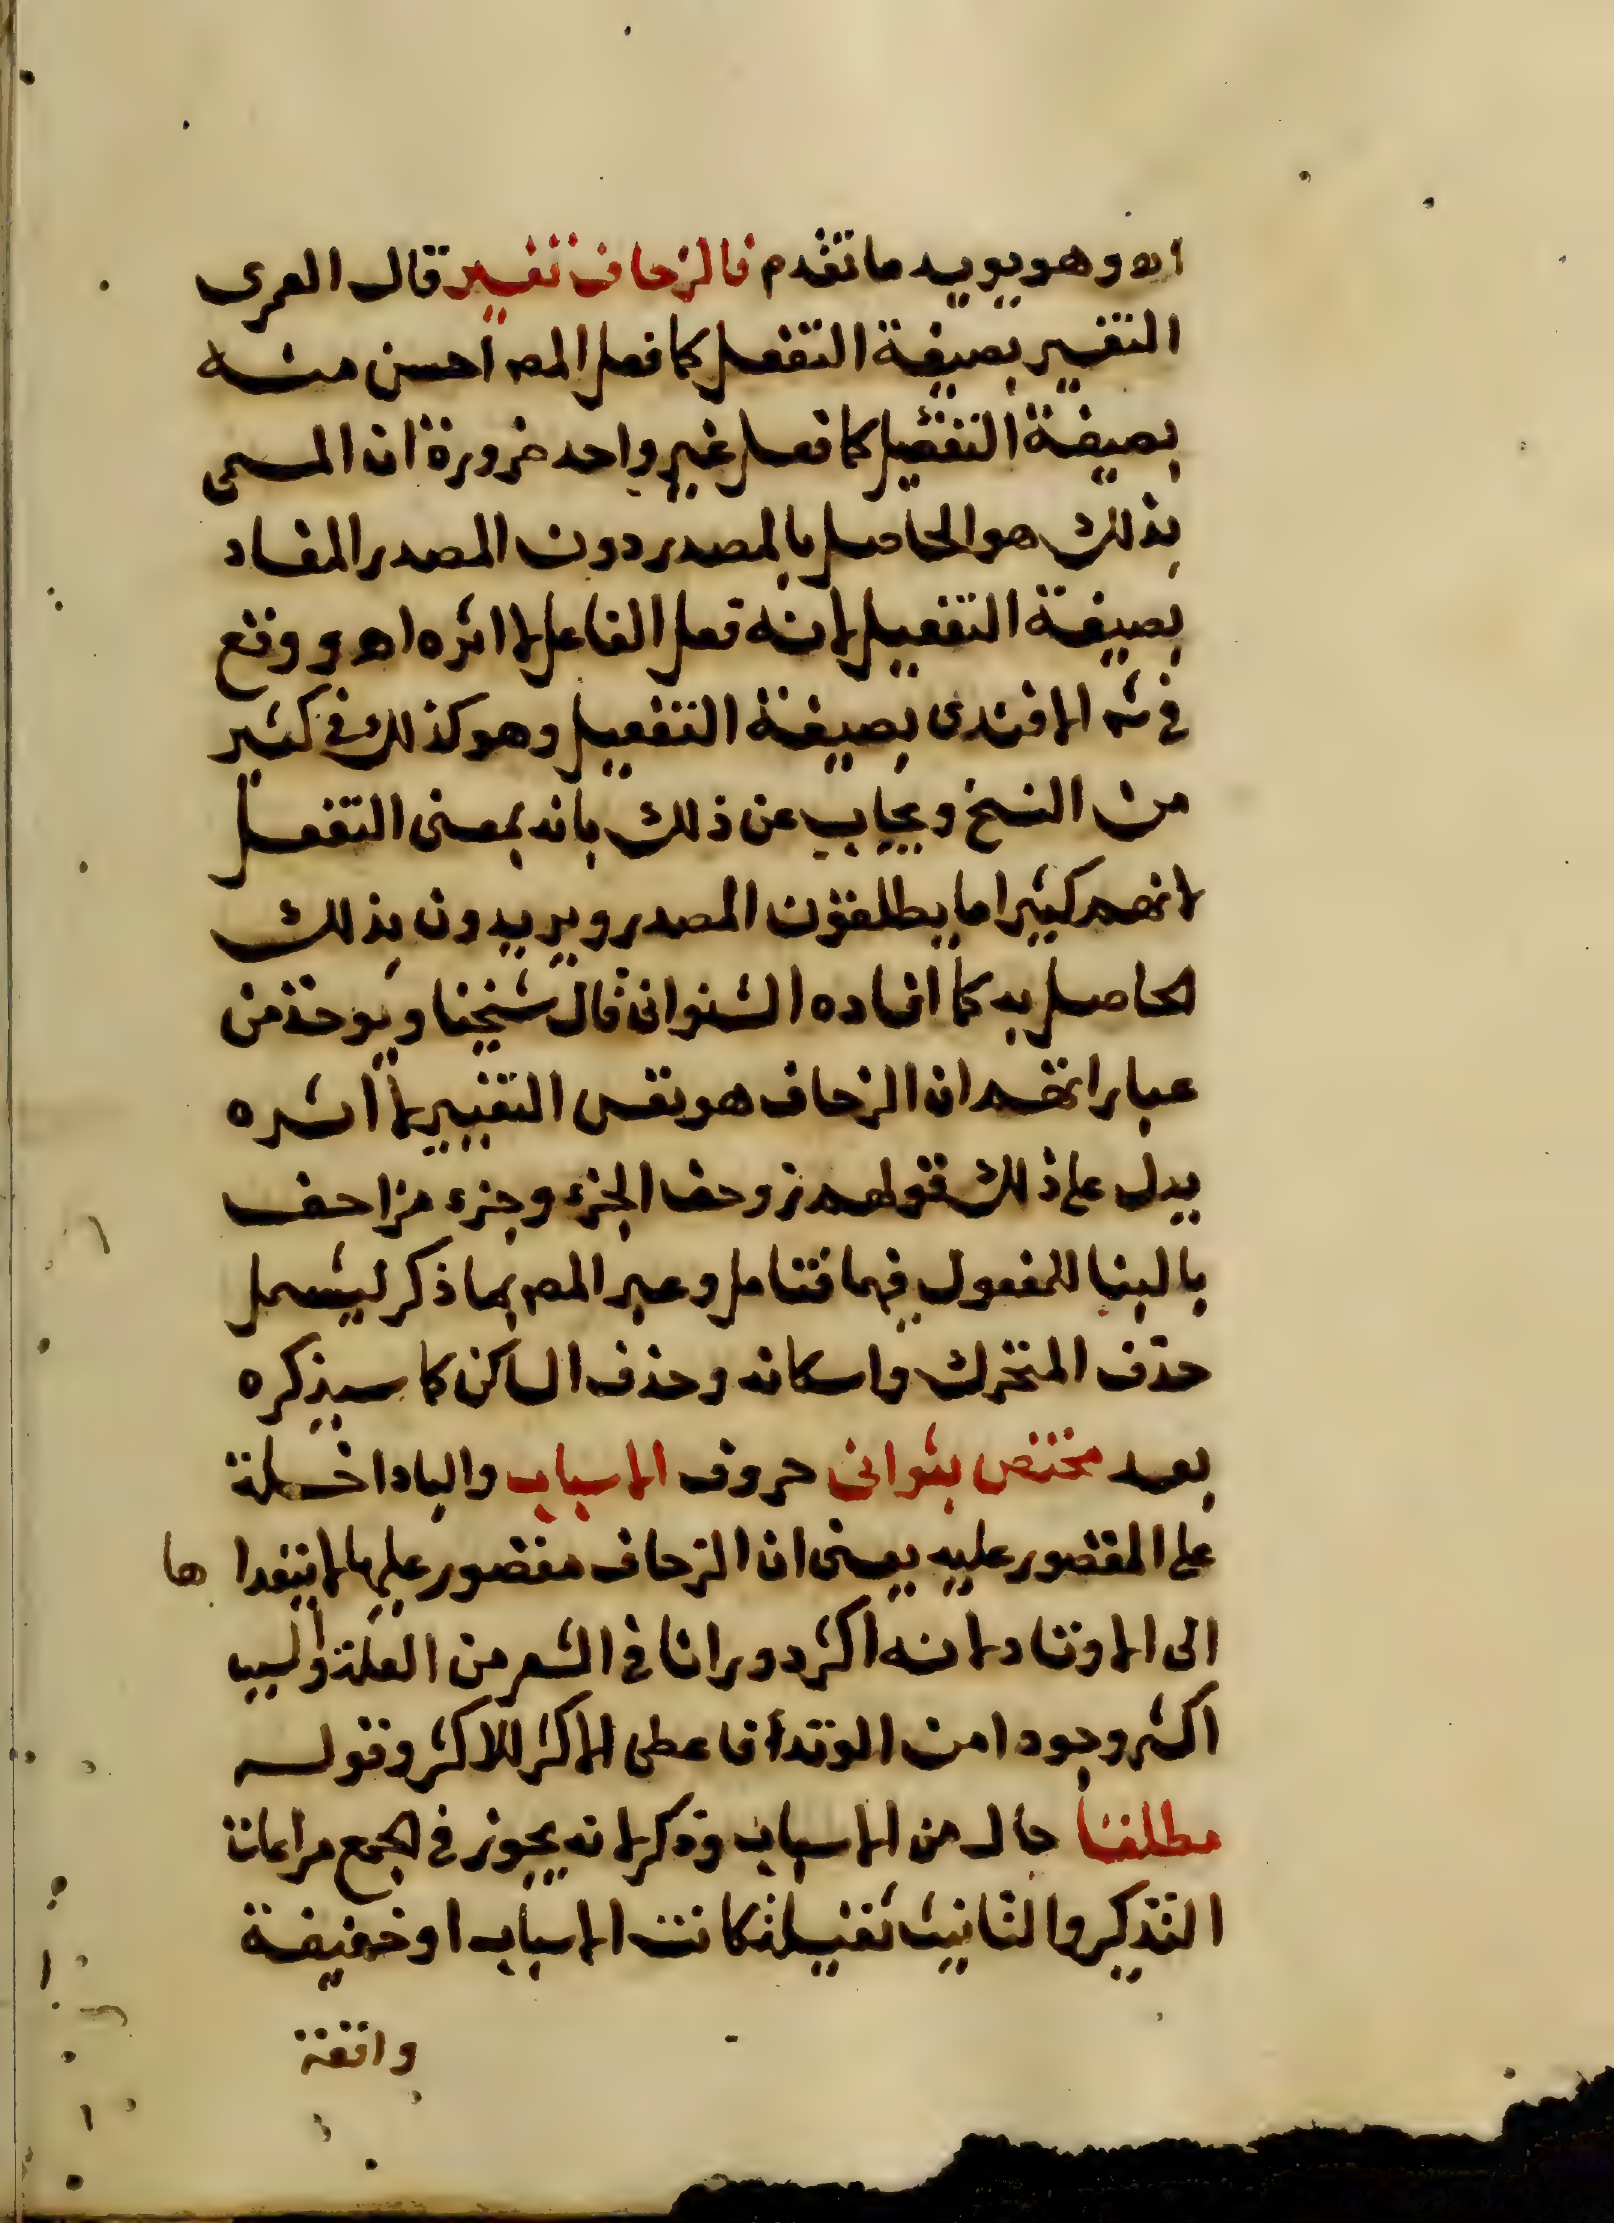 اهـ وهو يويد ما تقدم فالزحاف تغيير قال العمرى
التغير بصيغة التفعل كما فعل المصـ احسن منه
بصيغة التفعيل كما فعل غير واحد ضرورة ان المسمى
بذلك هو الحاصل بالمصدر دون المصدر المفاد
بصيغة التفعيل لانه فعل الفاعل لا اثره اهـ ووقع
فى شـ الافندى بصيغة التفعيل وهو كذلك فى كثير
من النسخ ويجاب عن ذلك بانه بمعنى التفعل
لانهم كثيرا ما يطلقون المصدر ويريدون بذلك
الحاصل به كما افاده الشنوانى قال شيخنا ويوخذ من
عباراتهم ان الزحاف هو نفس التغيير لا اثره
يدل على ذلك قولهم زوحف الجزء وجزء مزاحف
بالبنا للمفعول فيهما فتامل وعبر المصـ بما ذكر ليشمل
حذف المتحرك واسكانه وحذف الساكن كما سيذكره
بعد مختص بثوانى حروف الاسباب والبا داخلة
على المقصور عليه يعنى ان الزحاف مقصور عليها لا يتعدا ها
الى الاوتاد لانه اكثر دورانا فى الشعر من العلة والسبب
اكثر وجودا من الوتد فاعطى الاكثر للاكثر وقوله
مطلقا حال من الاسباب وذكر لانه يجوز فى الجمع مراعات
التذكير والتانيث ثقيلة كانت الاسباب او خفيفة
واقعة